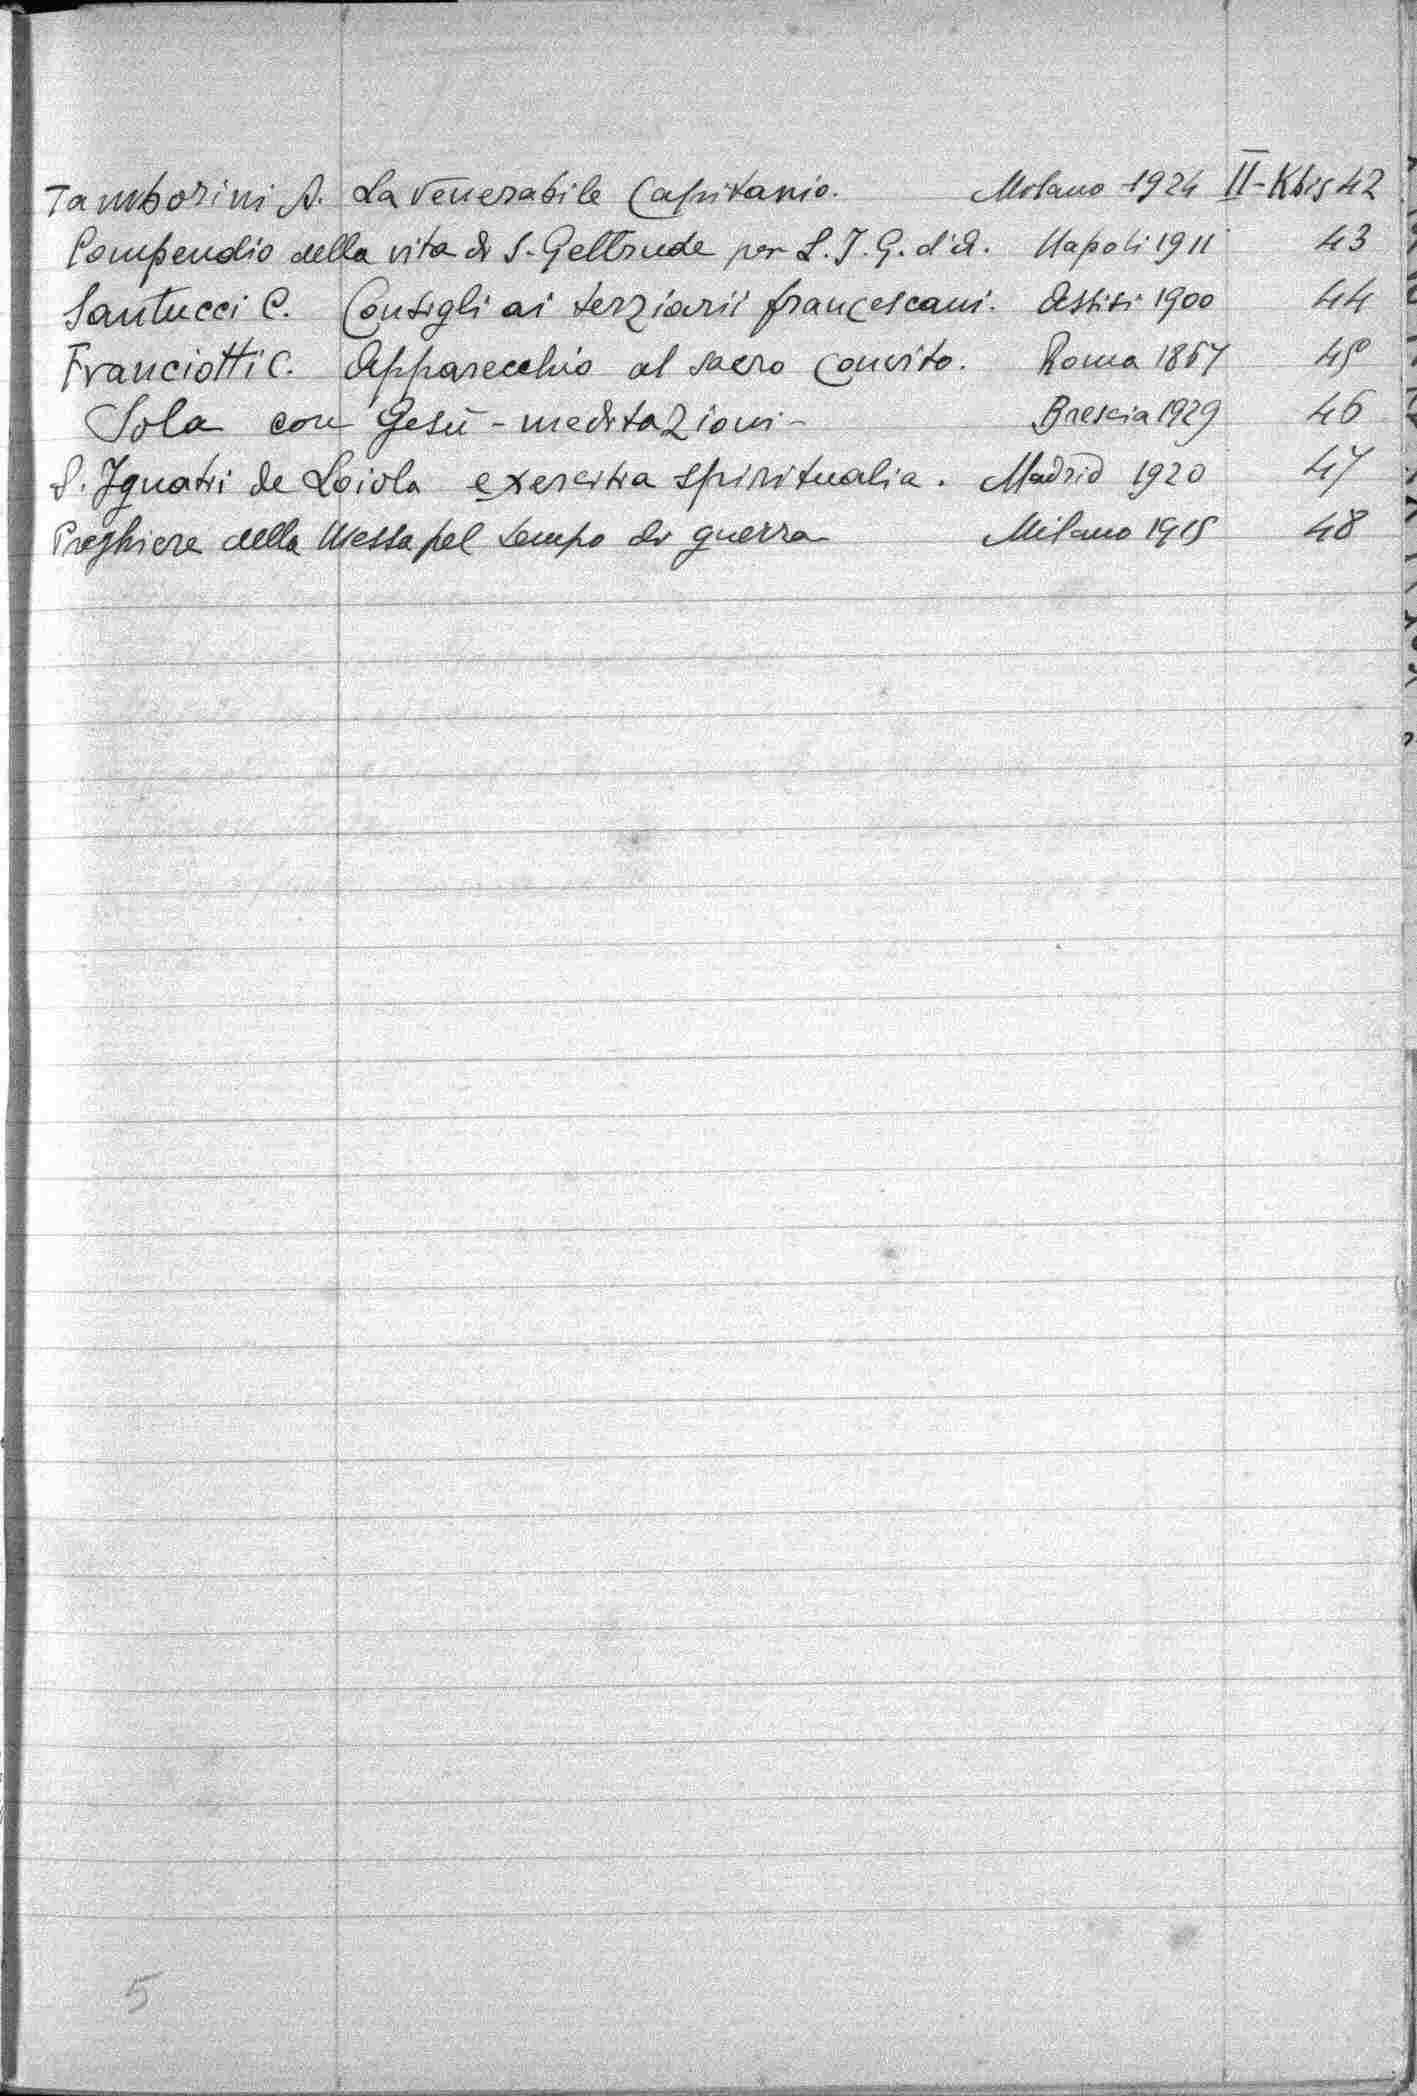 Tamborini A. La Venerabile Capitanio. Milano 1924 II-Kbis 42
Compendio della vita di S. Geltrude per L. J. G. d'A. Napoli 1911 43
Santucci C. Consigli ai terziarii francescani. Assisi 1900 44
Franciotti C. Apparecchio al sacro convito. Roma 1867 45
Sola con Gesù - meditazioni - Brescia 1929 46
S. Ignatii de Loiola exercitia spiritualia. Madrid 1920 47
Preghiere della Messa pel tempo di guerra Milano 1915 48
5